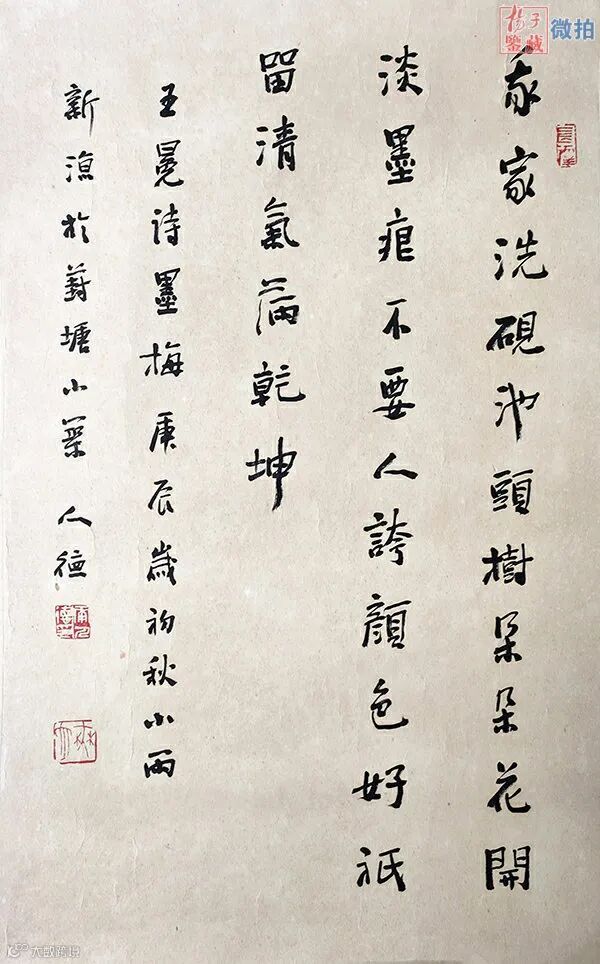 我家洗硯池頭樹朵朵花開
淡墨痕不要人誇顔色好祇
留清氣滿乾坤
王冕诗墨梅庚辰歲初秋小雨
新涼於葑塘小築 人德
杨子
鑒藏
微拍
大数跨境